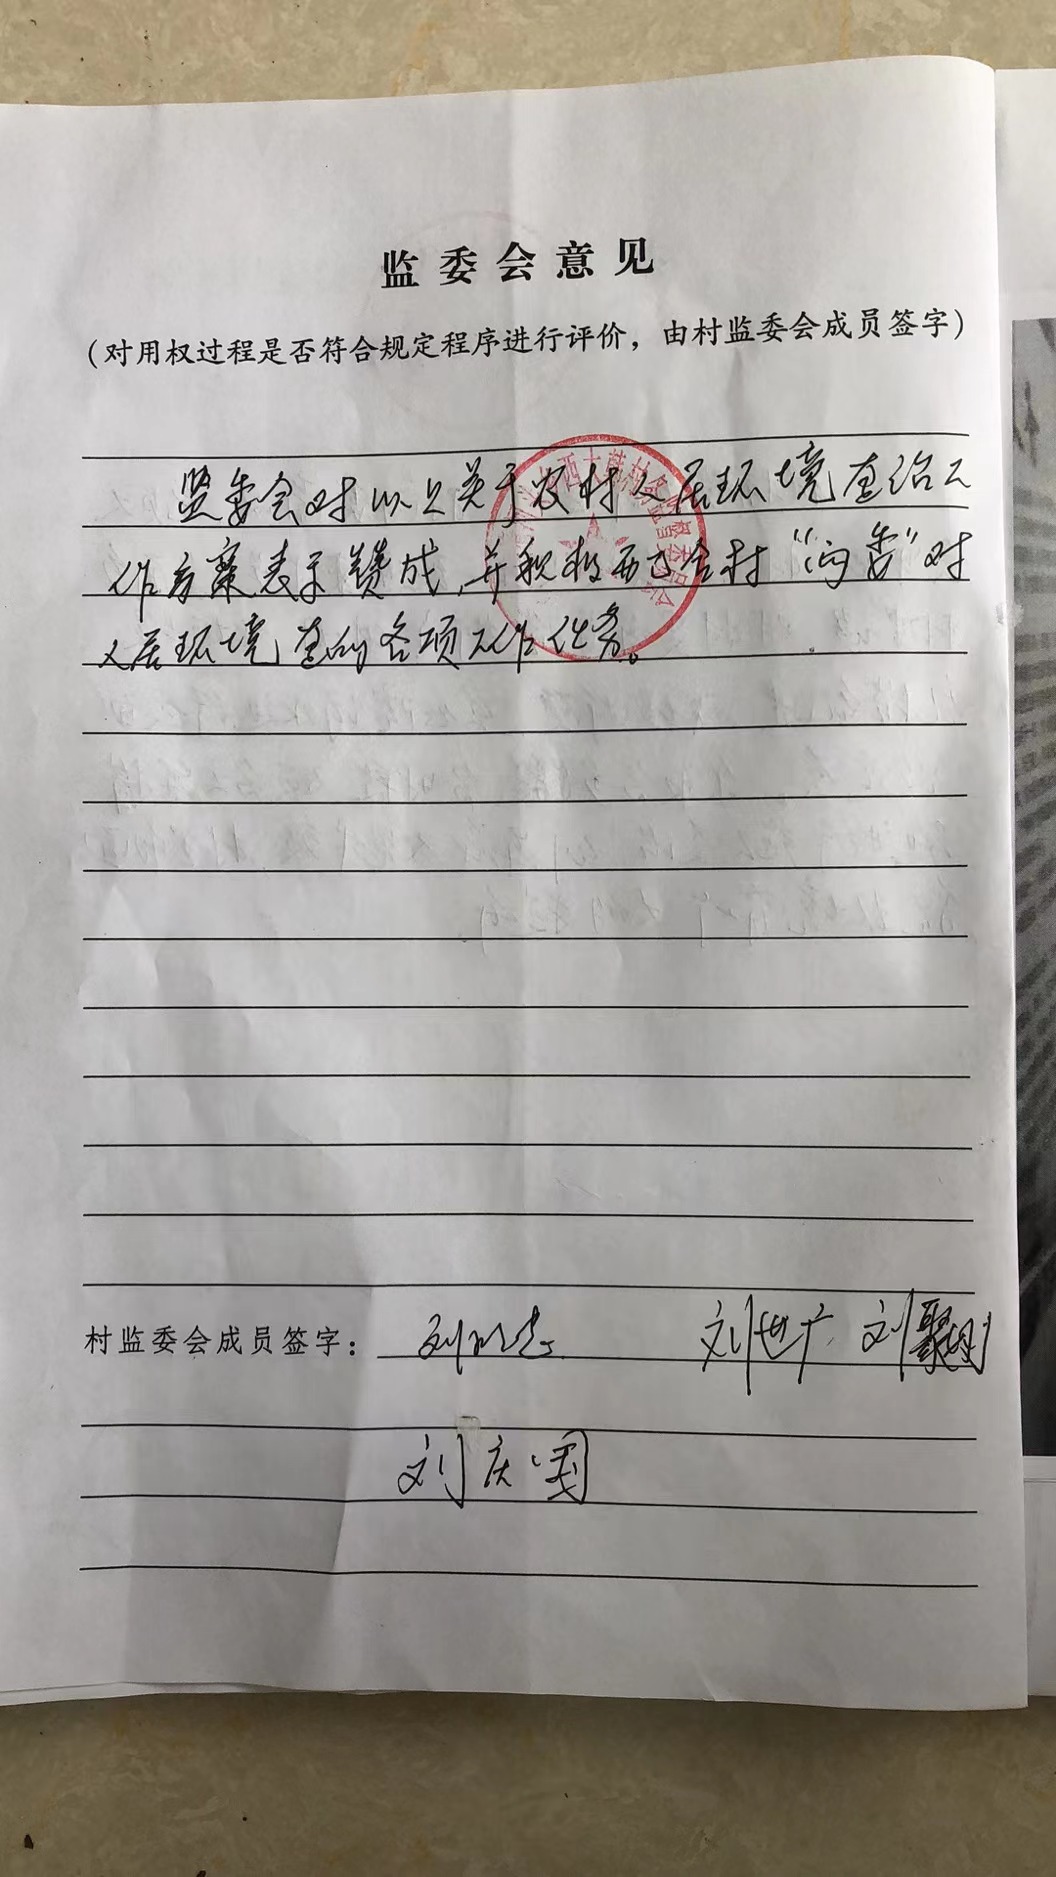 监委会意见
（对用权过程是否符合规定程序进行评价，由村监委会成员签字）
监委会对以上关于农村人居环境查治工
作方案表示赞成，并积极配合村“两委”对
人居环境查的各项工作任务。
村监委会成员签字： 刘 刘世广 刘聚刚
刘庆国